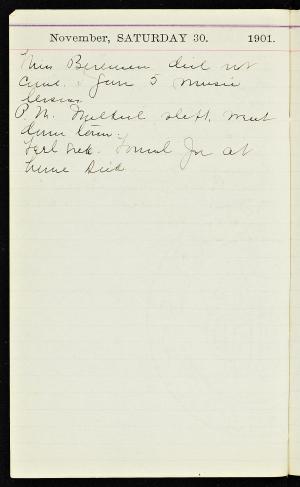 November, SATURDAY 30. 1901.
Miss Bereman did not
come. Gave 5 music
lessons
P.M. Mildred slept, went
down town.
Feel sick. Found Joe at
home sick